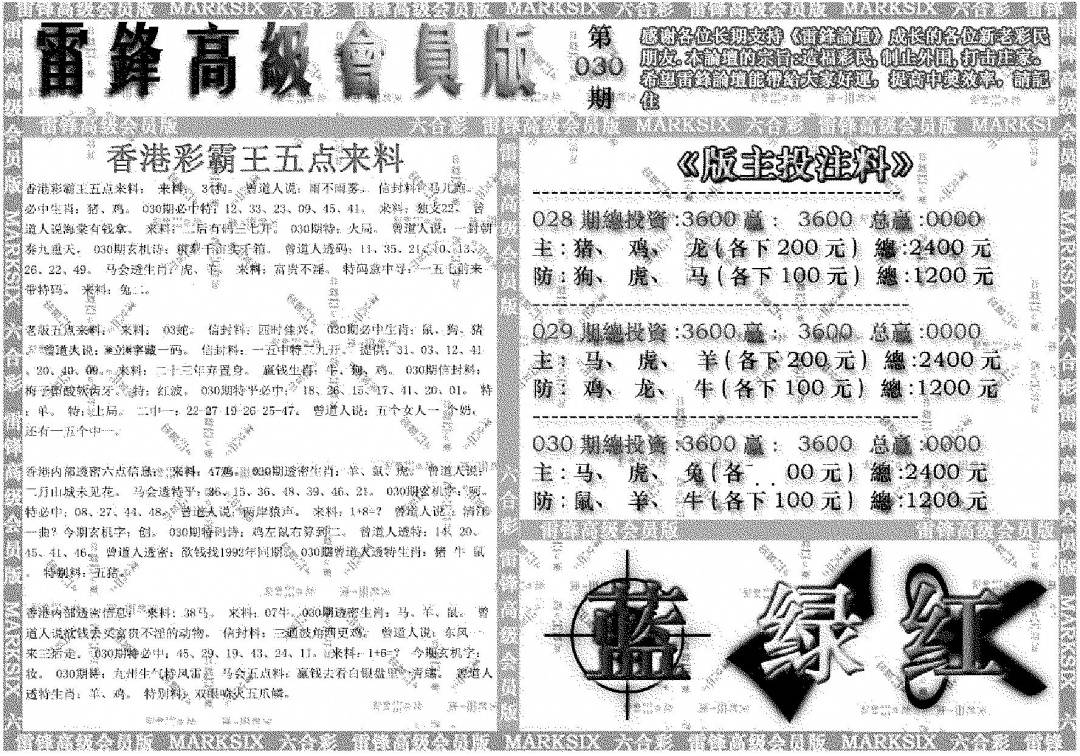 雷锋高级会员版 MARKSIX 六合彩 雷锋高级会员版 MARKSIX 六合彩 雷锋高级会员版
雷鋒高級會員版
第
030
期
感谢各位长期支持《雷鋒論壇》成长的各位新老彩民
朋友.本論壇的宗旨:造福彩民,制止外围,打击庄家。
希望雷鋒論壇能帶給大家好運，提高中獎效率，請記
住
雷锋高级会员版 六合彩 雷锋高级会员版 MARKSIX 六合彩 雷锋高级会员版 MARKSI
香港彩霸王五点来料
香港彩霸王五点来料： 来料： 34狗。 曾道人说：雨不雨雾。 信封料：马儿跑。
必中生肖：猪、鸡。 030期必中特：12、33、23、09、45、41。 来料：独支22。 曾
道人说海棠有钱拿。 来料：二后有码三七开。 030期特：火局。 曾道人说：一封朝
奏九重天。 030期玄机诗： 曾道人透码：11、35、21、10、13、
26、22、49。 马会透生肖：虎、羊。 来料：富贵不淫。 特码意中寻：一五七前来
带特码。 来料：兔二。
老版五点来料： 来料： 03蛇。 信封料：四时佳兴。 030期必中生肖：鼠、狗、猪
。 曾道人说： 字藏一码。 信封料：一五中特三九开。 提供：31、03、12、41
、20、40、09。 来料：二十三年弃置身。 赢钱生肖：牛、狗、鸡。 030期信封料：
梅子留酸软齿牙。 特：红波。 030期特平必中：18、26、15、17、41、20、01。 特
：单。 特：土局。 二中一：22-27 19-26 25-47。 曾道人说：五个女人一个奶，
还有一五个中一。
香港内部透密六点信息： 来料：47鸡。 030期透密生肖：羊、鼠、虎。 曾道人说：
二月山城未见花。 马会透特平：36、15、36、48、39、46、21。 030期玄机字：
特必中：08、27、44、48。 曾道人说：两岸猿声。 来料：1+8=？ 曾道人说：清江
一曲？今期玄机字：创。 030期特码诗：鸡左鼠右算到二。 曾道人透特：14、20、
45、41、46。 曾道人透密：欲钱找1992年同期。 030期曾道人透特生肖：猪 牛 鼠
。 特别料：五猪。
香港内部透密信息： 来料：38马。 来料：07牛。 030期透密生肖：马、羊、鼠。 曾
道人说欲钱去买富贵不淫的动物。 信封料：三通鼓角四更鸡。 曾道人说：东风一
来三后走。 030期特必中：45、29、19、43、24、11。 来料：1+6=？ 今期玄机字：
妆。 030期诗：九州生气恃风雷。 马会五点料：赢钱去看白银盘里一青螺。 曾道人
透特生肖：羊、鸡。 特别料：双眼喷火五爪鳞。
《版主投注料》
028 期總投資:3600 赢： 3600 总赢:0000
主:猪、 鸡、 龙(各下200元) 總:2400元
防:狗、 虎、 马(各下100元) 總:1200元
029 期總投資:3600 赢： 3600 总赢:0000
主: 马、 虎、 羊(各下200元) 總:2400元
防: 鸡、 龙、 牛(各下100元) 總:1200元
030 期總投資:3600 赢： 3600 总赢:0000
主:马、 虎、 兔(各 00元) 總:2400元
防:鼠、 羊、 牛(各下100元) 總:1200元
雷锋高级会员版 雷锋高级会员版
藍 绿 红
雷锋高级会员版 MARKSIX 六合彩 雷锋高级会员版 MARKSIX 六合彩 雷锋高级会员版